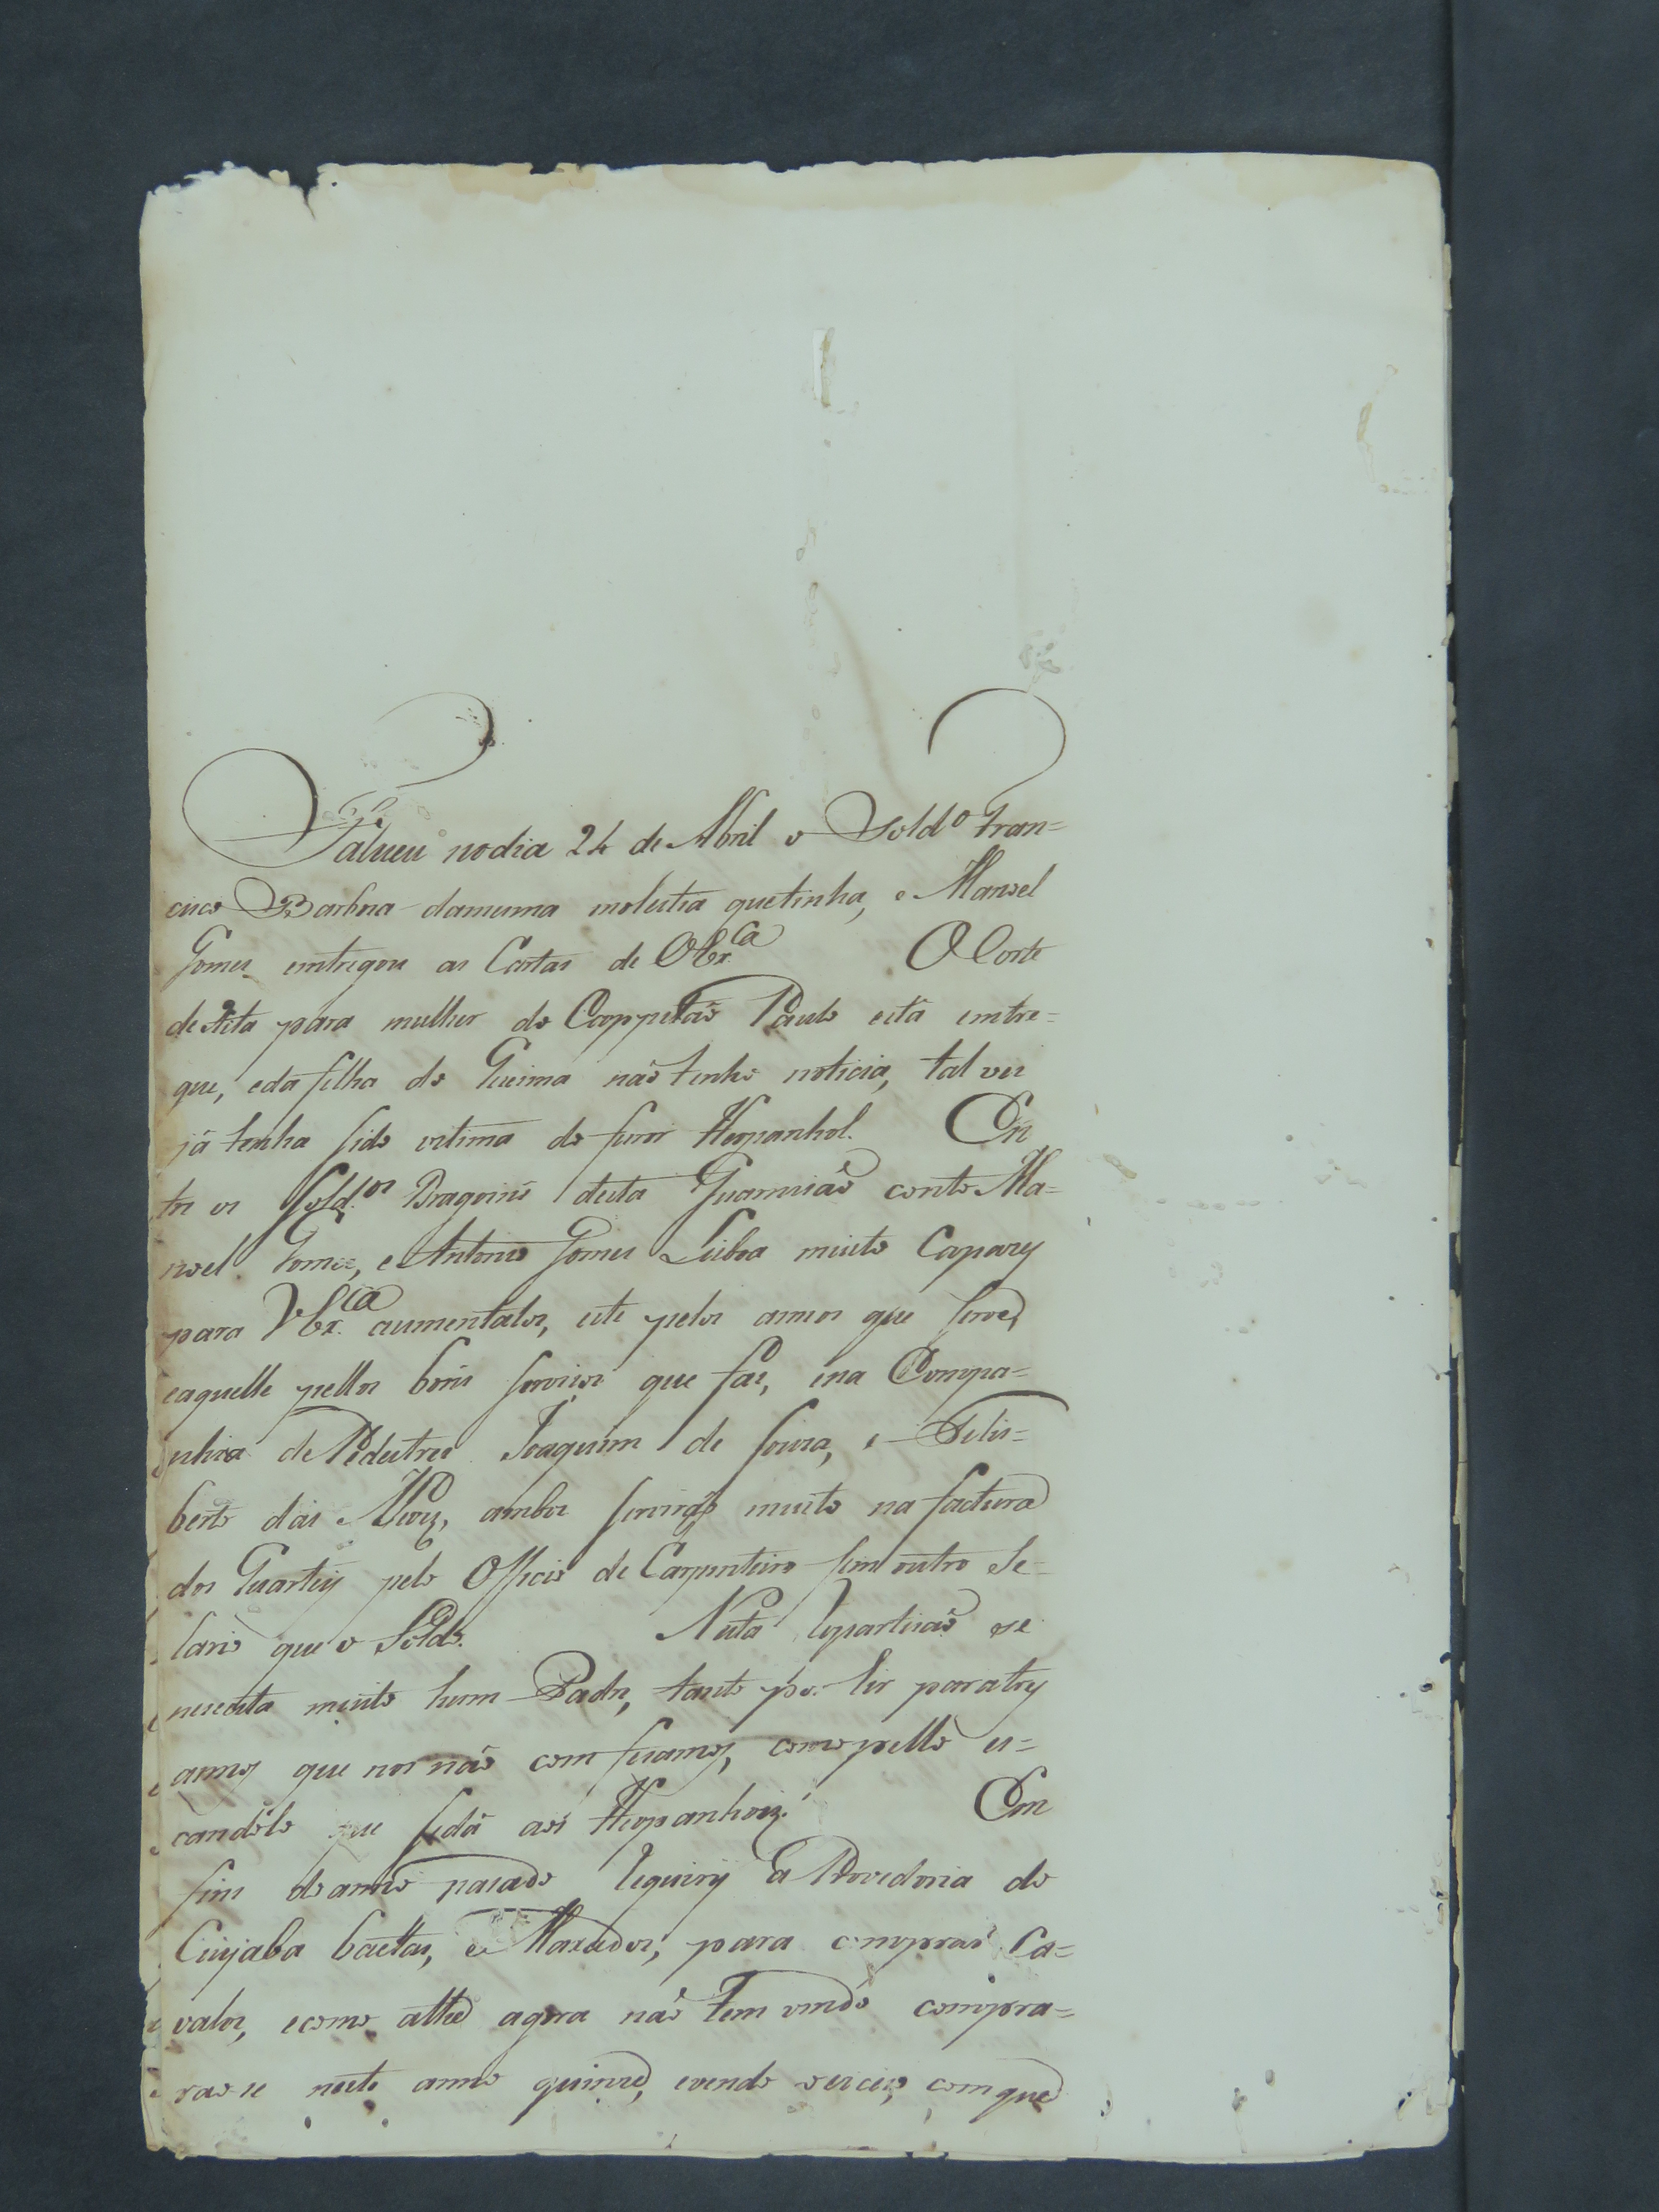 Faleceu nodia 24 de Abril o Sold.º Fran=
cisco Barboza damesma molestia quetinha, e Manoel
Gomes entregou as Cartas de VEx.ca O Corte
de xita para mulher do Cappitaõ Paulo está entre=
gue, eda filha do Guima naõ tenho noticia, tal vez
já tenha sido vitima do furor Hespanhol. En
tre os Sold.os Dragoens desta Guarniçaõ conto Ma=
noel Gomes, e Antonio Gomes Lisboa muito Capazes
para VEx.cia aumentalos, este pelos annos que serve,
eaquelle pellos bons serviços que faz, ena Compa=
nhia de Pedestres Joaquim de Souza, e Felis=
berto das Neves, ambos serviraõ muito na factura
dos Quarteis pelo Officio de Carpinteiro sem outro Se=
lario que o Soldo. Nesta repartiçaõ se
necesita muito hum Padre, tanto por hir paratres
annos que nos naõ comfesamos, como pello es=
candolo que sedá aos Hespanhoes. Em
fins do anno pasado requery a Provedoria do
Cuyaba baetas, e Maxados, para comprar Ca=
valos, ecomo athe agora naõ tem vindo compra=
rao se neste anno quinze, evendo oexceso, comque